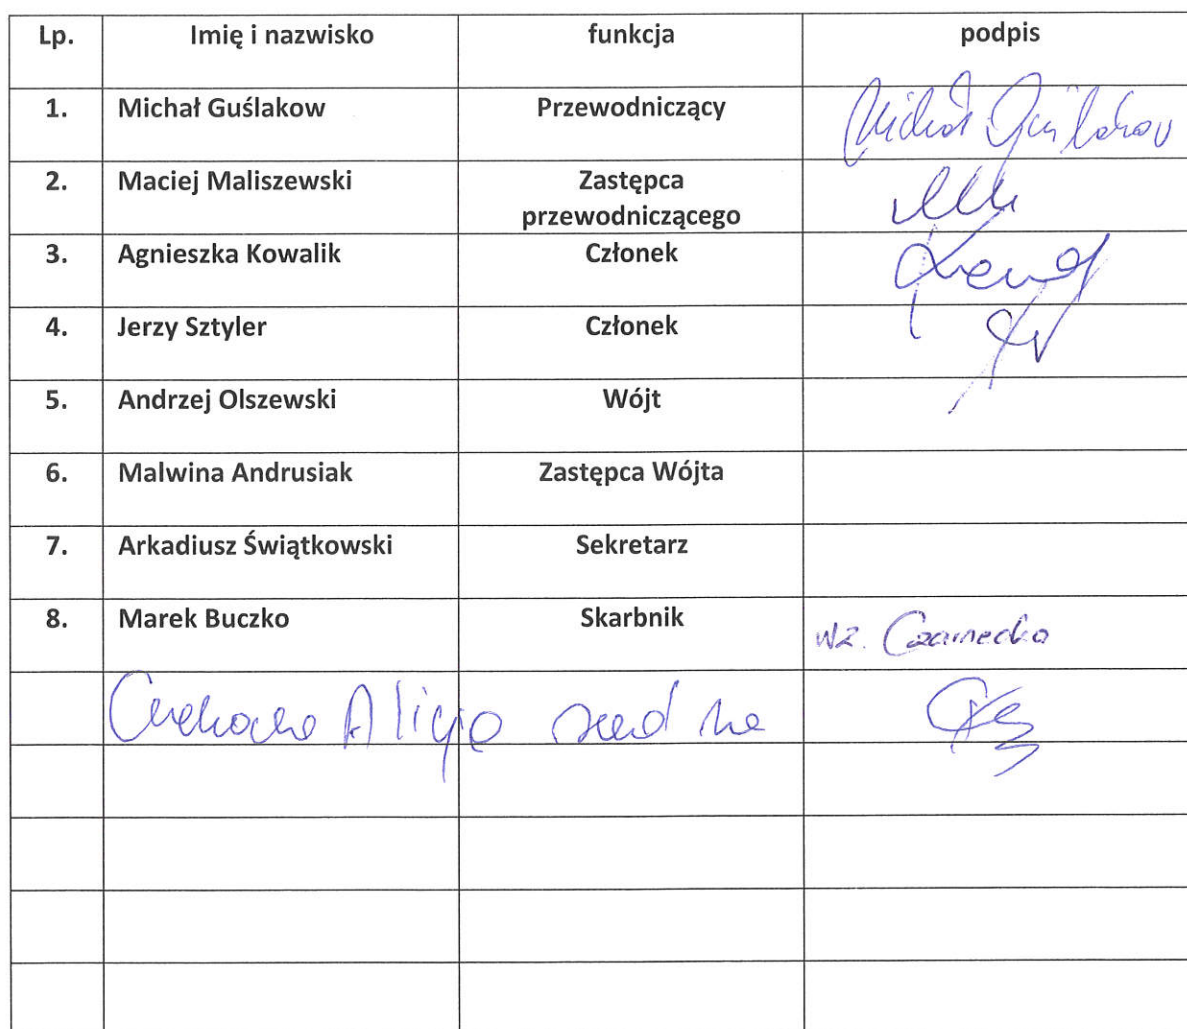 Lp. Imię i nazwisko funkcja podpis
1. Michał Guślakow Przewodniczący Michał Guślakow
2. Maciej Maliszewski Zastępca
przewodniczącego
3. Agnieszka Kowalik Członek
4. Jerzy Sztyler Członek
5. Andrzej Olszewski Wójt
6. Malwina Andrusiak Zastępca Wójta
7. Arkadiusz Świątkowski Sekretarz
8. Marek Buczko Skarbnik wz. Czarnecka
Alicja